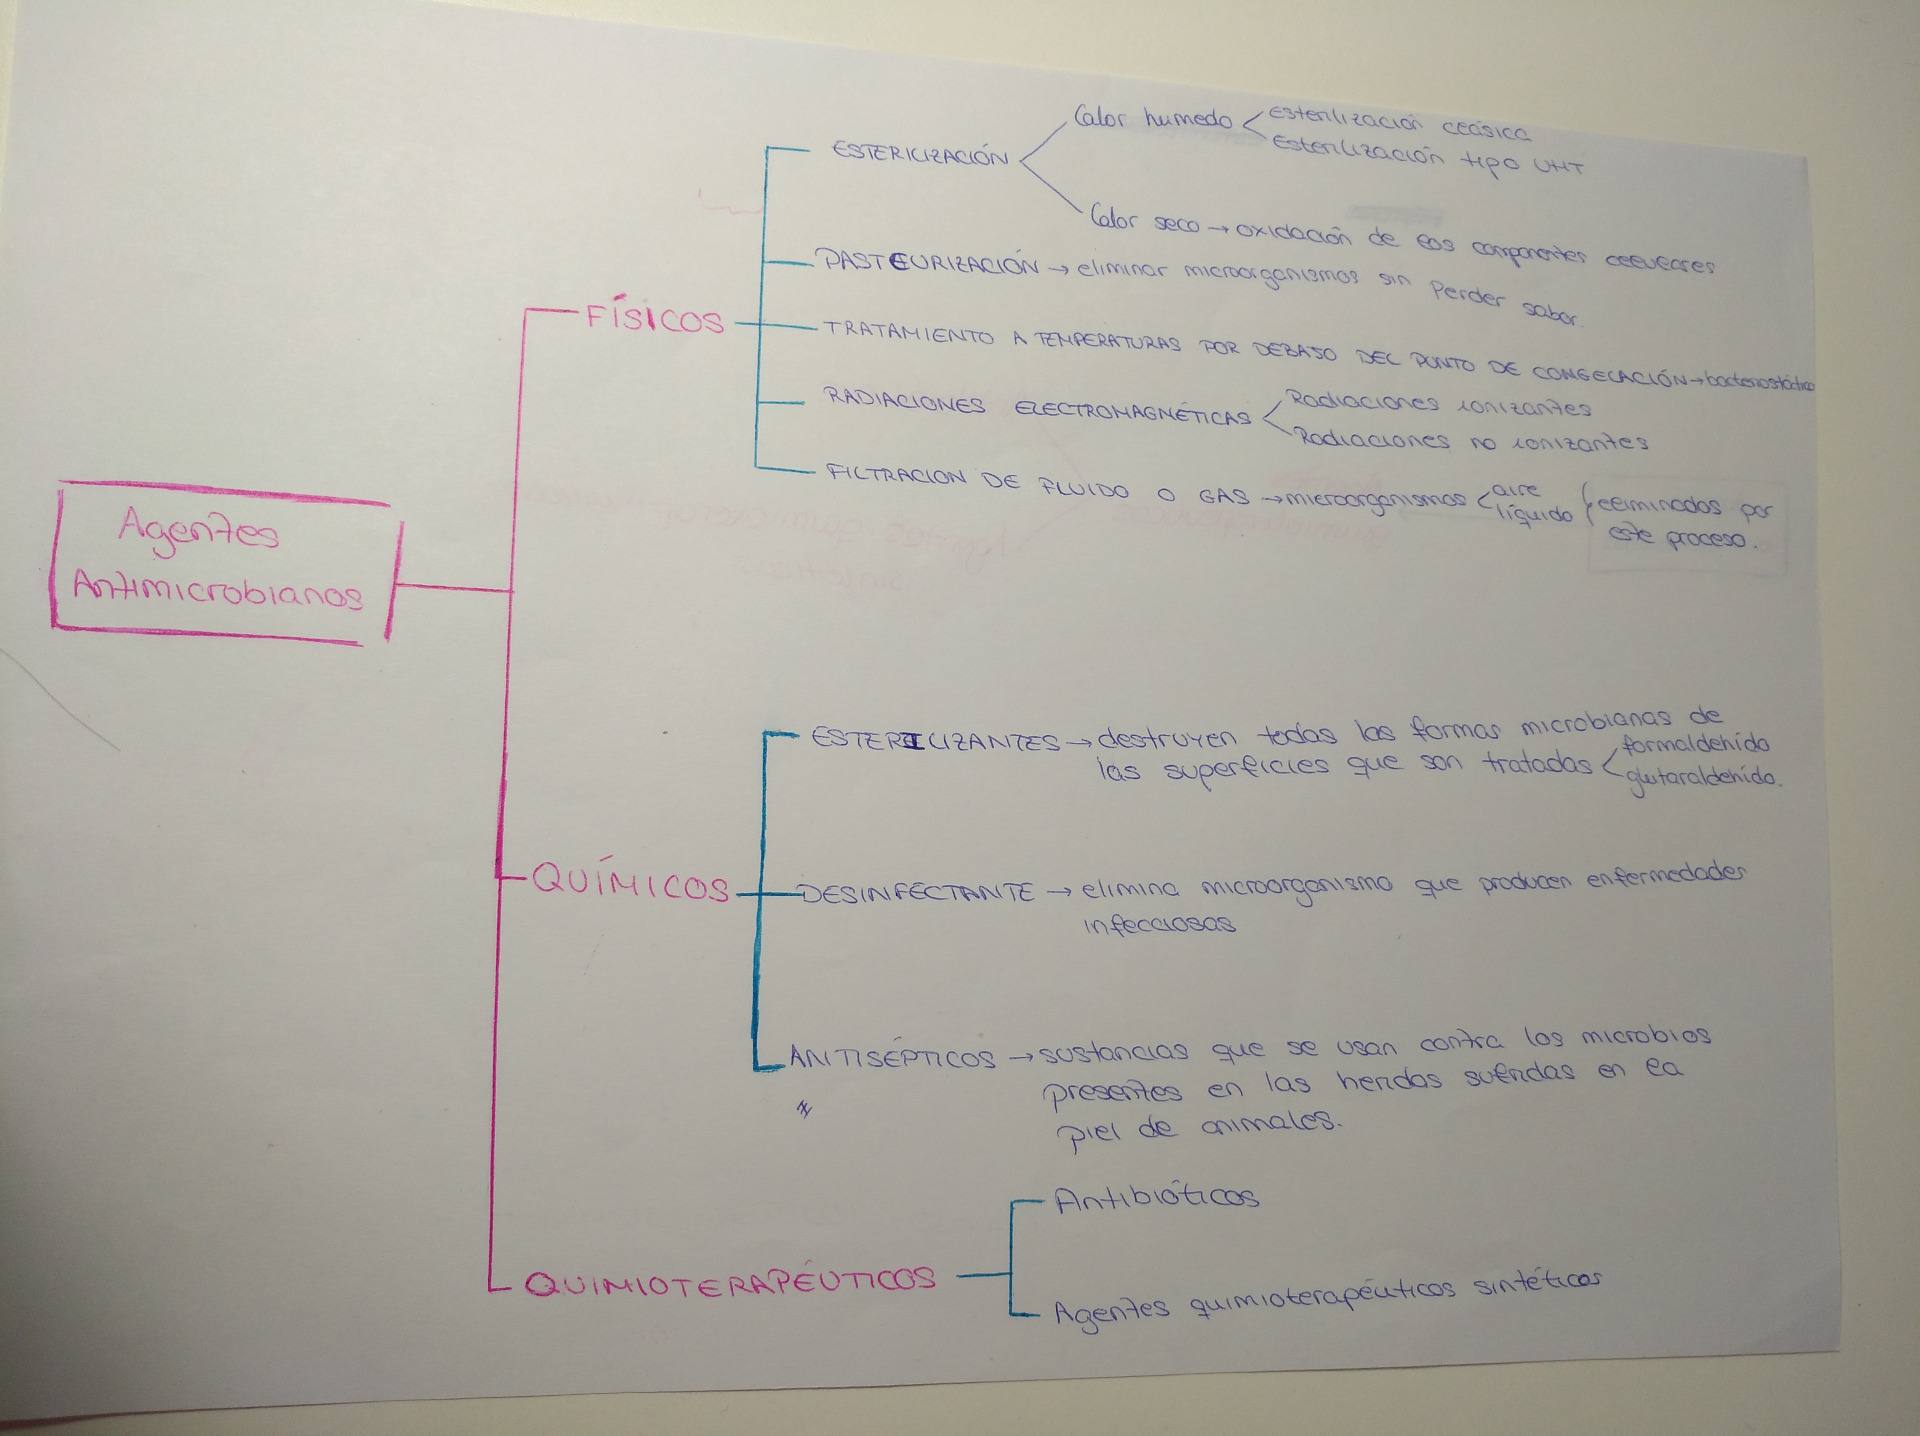 Agentes
Antimicrobianos
FÍSICOS
ESTERILIZACIÓN
Calor humedo
Esterilización clásica
Esterilización tipo UHT
Calor seco → oxidación de los componentes celulares
PASTEURIZACIÓN → eliminar microorganismos sin perder sabor.
TRATAMIENTO A TEMPERATURAS POR DEBAJO DEL PUNTO DE CONGELACIÓN → bacteriostático
RADIACIONES ELECTROMAGNÉTICAS
Radiaciones ionizantes
Radiaciones no ionizantes
FILTRACION DE FLUIDO O GAS → microorganismos
aire
líquido
eliminados por
este proceso.
QUÍMICOS
ESTERILIZANTES → destruyen todas las formas microbianas de
las superficies que son tratadas
formaldehído
glutaraldehído.
DESINFECTANTE → elimina microorganismo que producen enfermedades
infecciosas
ANTISÉPTICOS → sustancias que se usan contra los microbios
presentes en las heridas sufridas en la
piel de animales.
QUIMIOTERAPÉUTICOS
Antibióticos
Agentes quimioterapéuticos sintéticos